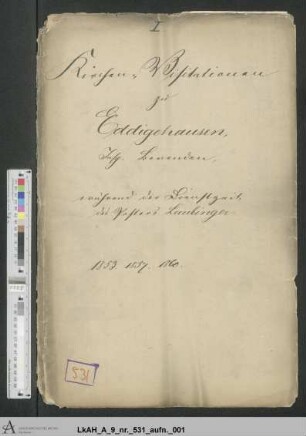 I
Kirchen-Visitationen
zu
Eddigehausen,
Insp. Bovenden,
während der Dienstzeit
des Pastors Laubinger
1853. 1857. 1860.
531
LkAH_A_9_nr._531_aufn._001